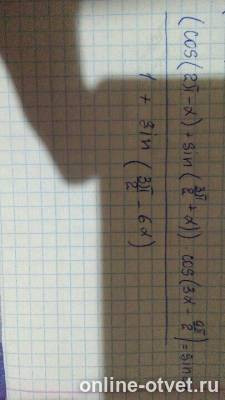 (cos(2π-α)+sin(3π/2+α)) cos(3α-9π/2)=sin
1 + sin(3π/2-6α)
online-otvet.ru